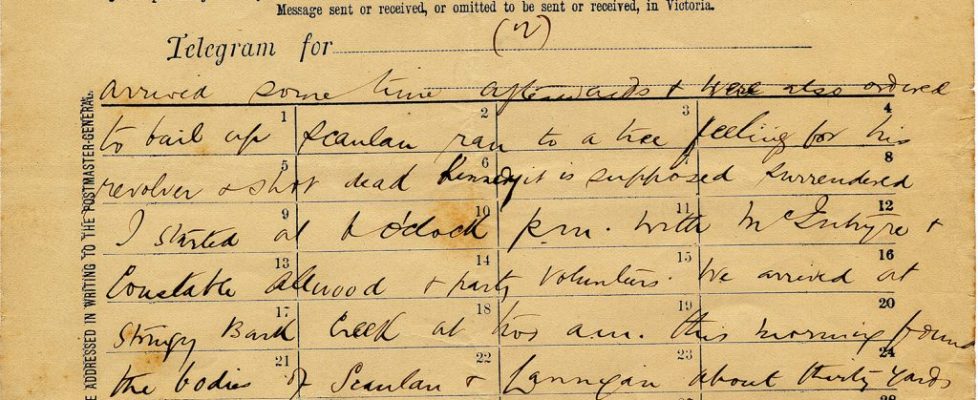 Message sent or received, or omitted to be sent or received, in Victoria.
Telegram for (2)
arrived some time afterwards & were also ordered
1 2 3 4
to bail up Scanlan ran to a tree feeling for his
5 6 7 8
revolver & shot dead Kennedy it is supposed surrendered
9 10 11 12
I started at o'clock p.m. with McIntyre &
13 14 15 16
Constable Allwood & party volunteers. We arrived at
17 18 19 20
Stringy Bark Creek at two a.m. this morning found
21 22 23 24
the bodies of Scanlan & Lannigan about thirty yards
E ADDRESSED IN WRITING TO THE POSTMASTER-GENERAL.